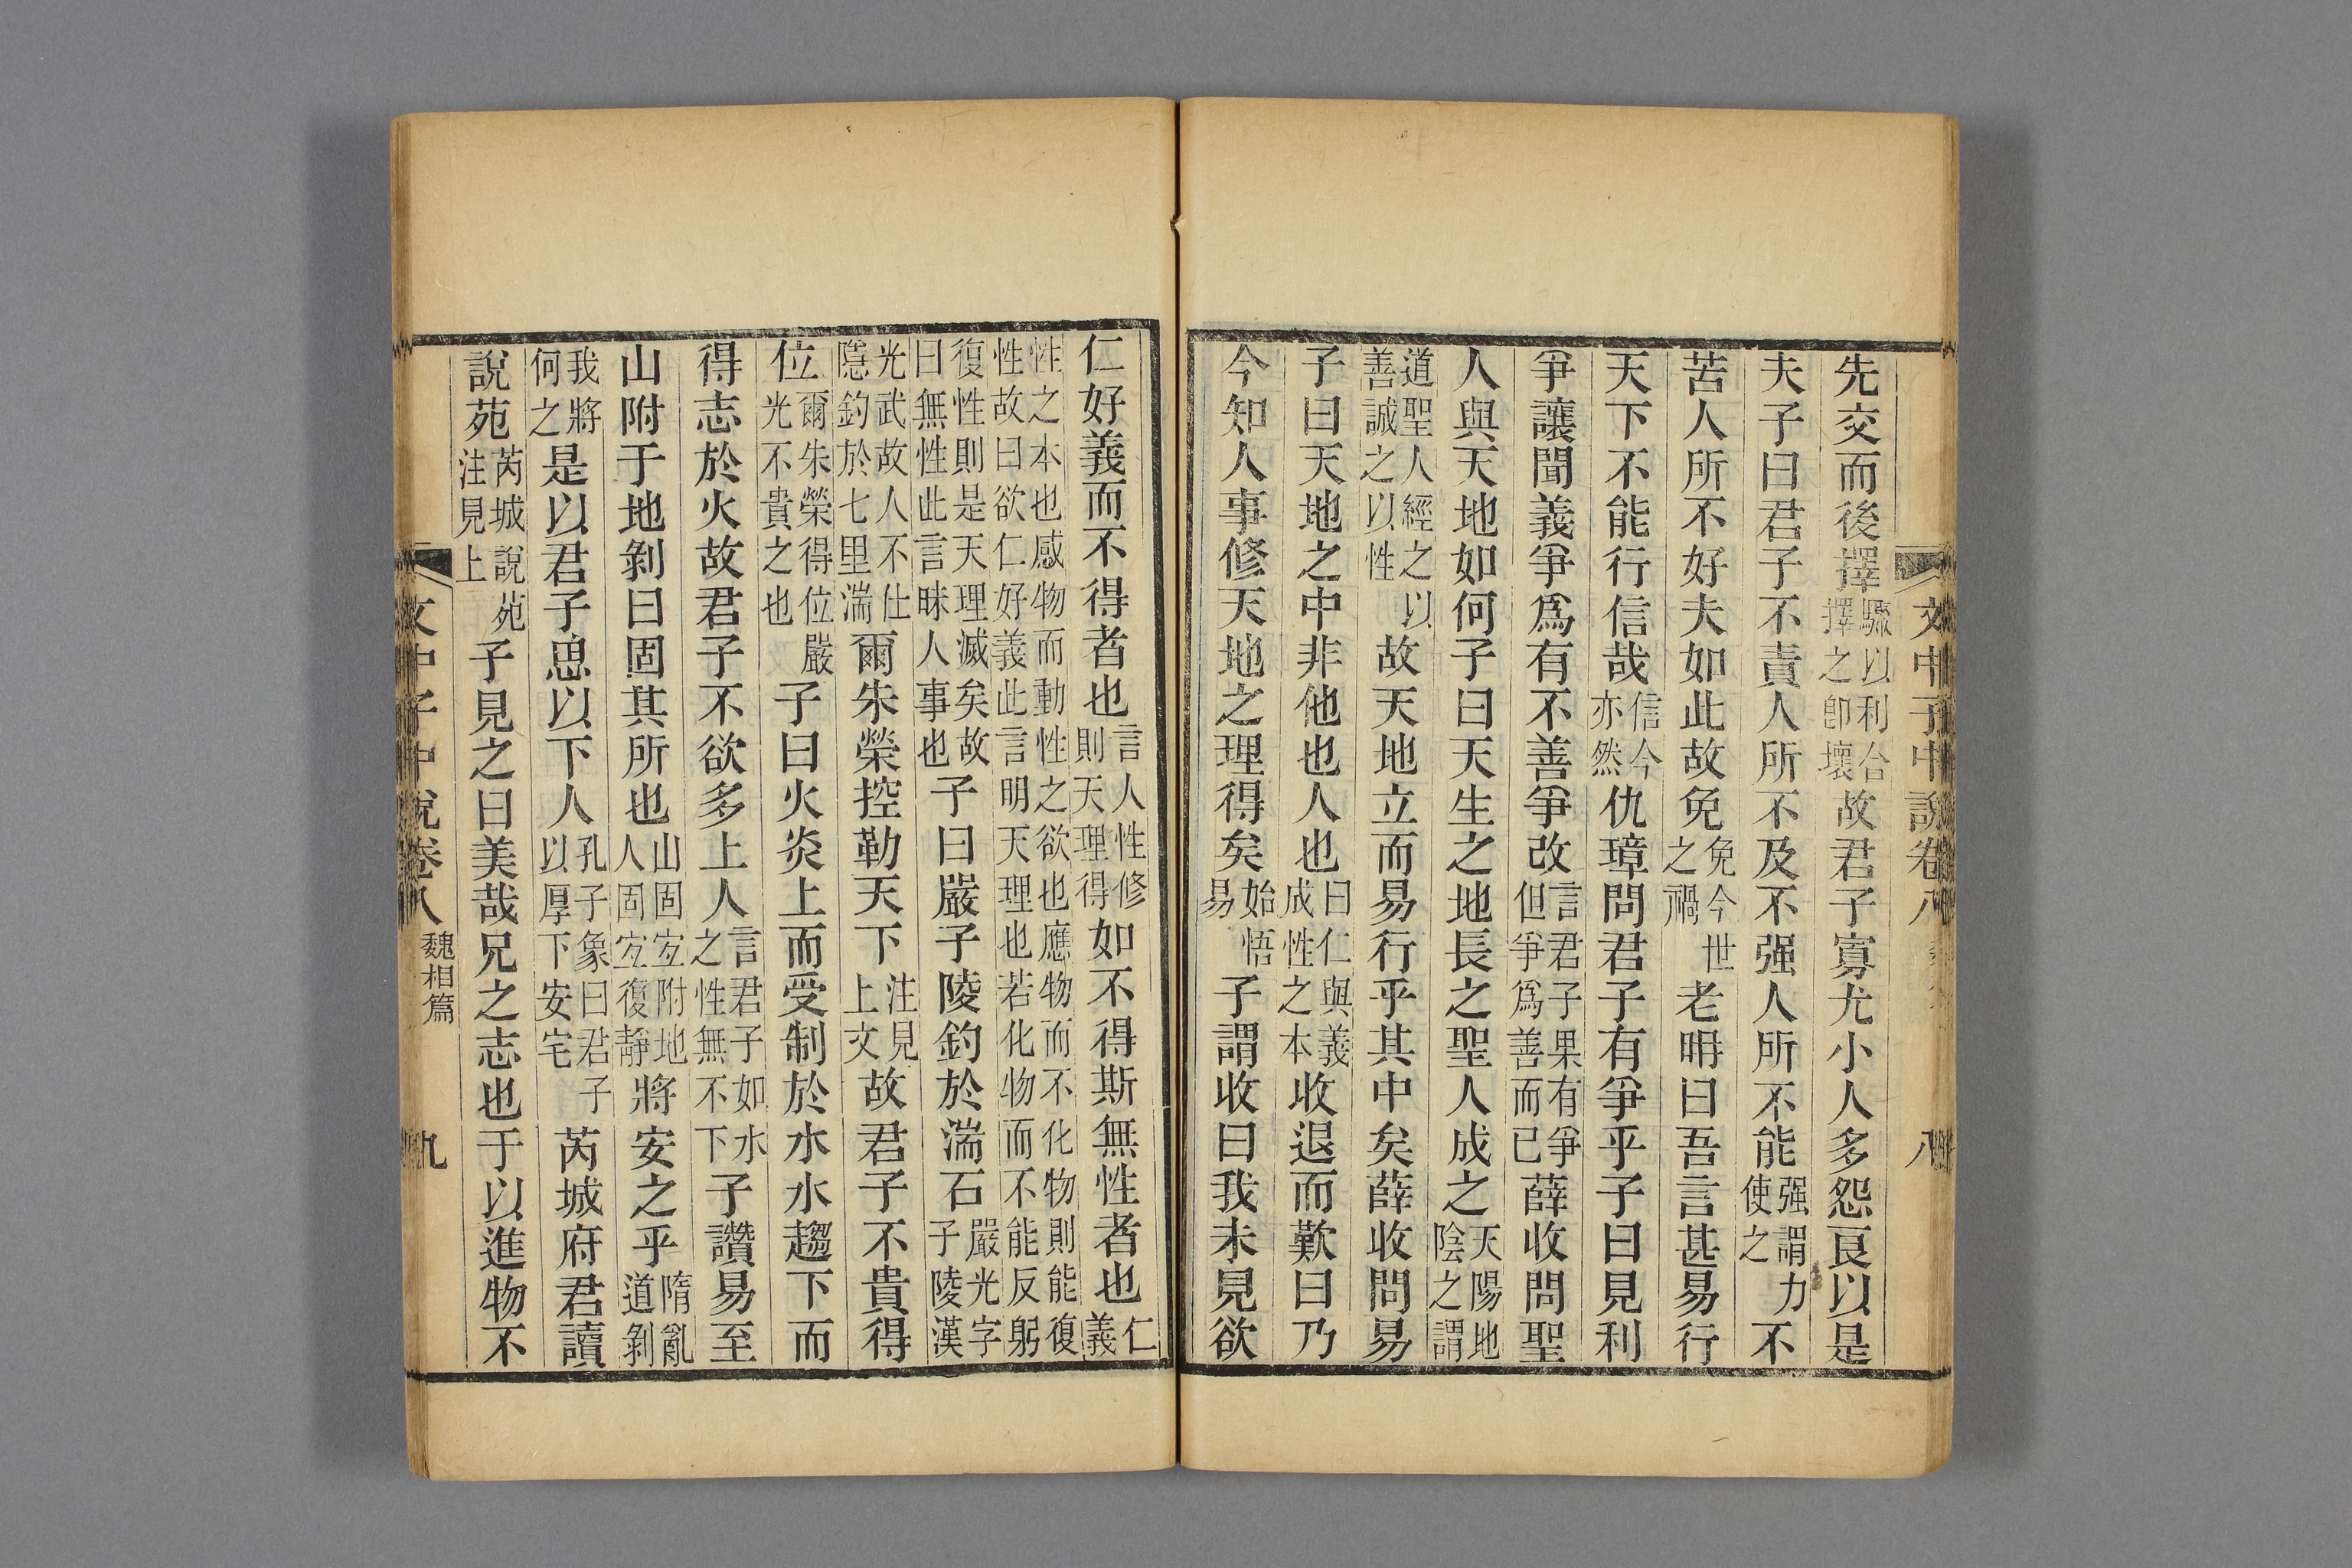 文中子中說卷八 八
先交而後擇驟以利合擇之卽壞故君子寡尤小人多怨良以是
夫子曰君子不責人所不及不强人所不能强謂力使之不
苦人所不好夫如此故免免今世之禍老耼曰吾言甚易行
天下不能行信哉信今亦然仇璋問君子有爭乎子曰見利
爭讓聞義爭爲有不善爭改言君子果有爭但爭爲善而已薛收問聖
人與天地如何子曰天生之地長之聖人成之天陽地陰之謂
道聖人經之以善誠之以性故天地立而易行乎其中矣薛收問易
子曰天地之中非他也人也曰仁與義成性之本收退而歎曰乃
今知人事修天地之理得矣始悟易子謂收曰我未見欲
仁好義而不得者也言人性修則天理得如不得斯無性者也仁義
性之本也感物而動性之欲也應物而不化物則能復
性故曰欲仁好義此言明天理也若化物而不能反躬
復性則是天理滅矣故曰無性此言昧人事也子曰嚴子陵釣於湍石嚴光字子陵漢
光武故人不仕隱釣於七里湍爾朱榮控勒天下注見上文故君子不貴得
位爾朱榮得位嚴光不貴之也子曰火炎上而受制於水水趨下而
得志於火故君子不欲多上人言君子如水之性無不下子讚易至
山附于地剝曰固其所也山固宐附地人固宐復靜將安之乎隋亂道剝
我將何之是以君子思以下人孔子象曰君子以厚下安宅芮城府君讀
說苑芮城說苑注見上子見之曰美哉兄之志也于以進物不
文中子中說卷八 魏相篇 九